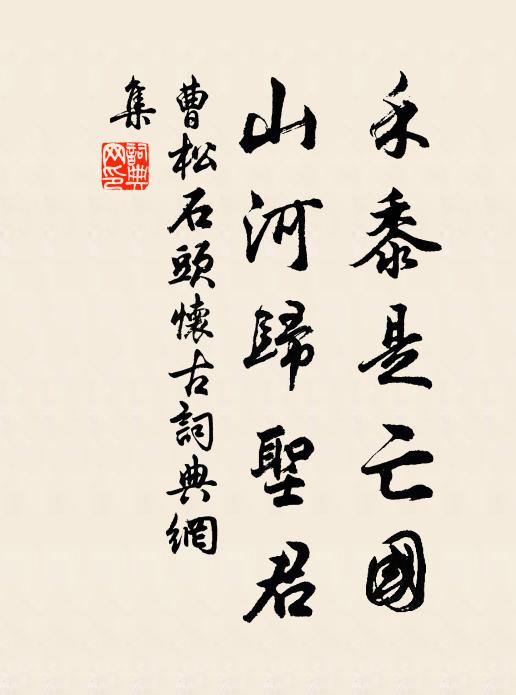 禾黍是亡國
山河歸聖君
曹松石頭懷古詞典網
集
詞典
网印